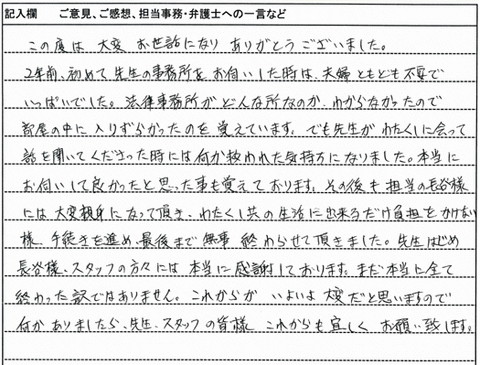 記入欄 ご意見、ご感想、担当事務・弁護士への一言など
この度は 大変 お世話になり ありがとうございました。
2年前、初めて先生の事務所をお伺いした時は、夫婦ともども不安で
いっぱいでした。法律事務所がどんな所なのか、わからなかったので
部屋の中に入りずらかったのを覚えています。でも先生がわたくしに会って
話を聞いてくださった時には何か救われた気持ちになりました。本当に
お伺いして良かったと思った事も覚えております。その後も担当の長谷様
には大変親身になって頂き、わたくし共の生活に出来るだけ負担をかけない
様、手続きを進め、最後まで無事終わらせて頂きました。先生はじめ
長谷様、スタッフの方々には本当に感謝しております。まだ本当に全て
終わった訳ではありません。これからがいよいよ大変だと思いますので
何かありましたら、先生、スタッフの皆様 これからも宜しくお願い致します。